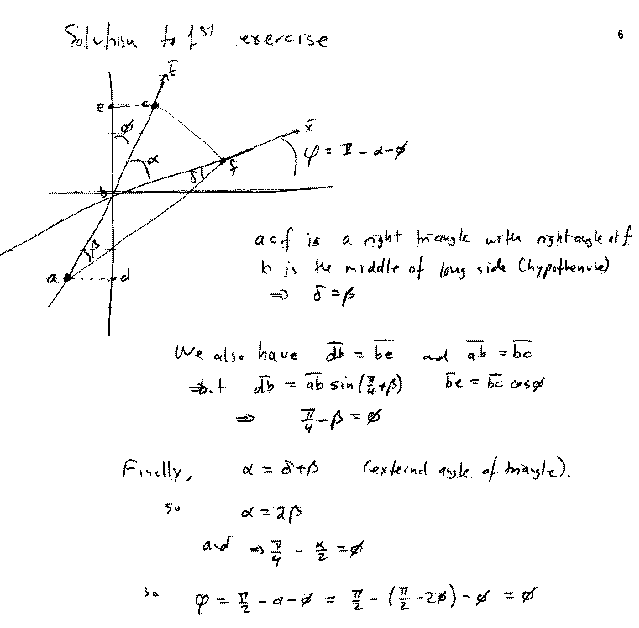 Solution to 1st exercise
6
Ē
e c
φ
x̄
α
φ = π/2 - α - ϕ
δ f
b
β
a d
acf is a right triangle with right angle at f
b is the middle of long side (hypothenuse)
⇒ δ = β
We also have d̄b̄ = b̄ē and āb̄ = b̄c̄
but d̄b̄ = āb̄ sin(π/4+β) b̄ē = b̄c̄ cosϕ
⇒ π/4 - β = ϕ
Finally, α = δ+β (external angle of triangle).
so α = 2β
and ⇒ π/4 - α/2 = ϕ
so φ = π/2 - α - ϕ = π/2 - (π/2 - 2ϕ) - ϕ = ϕ